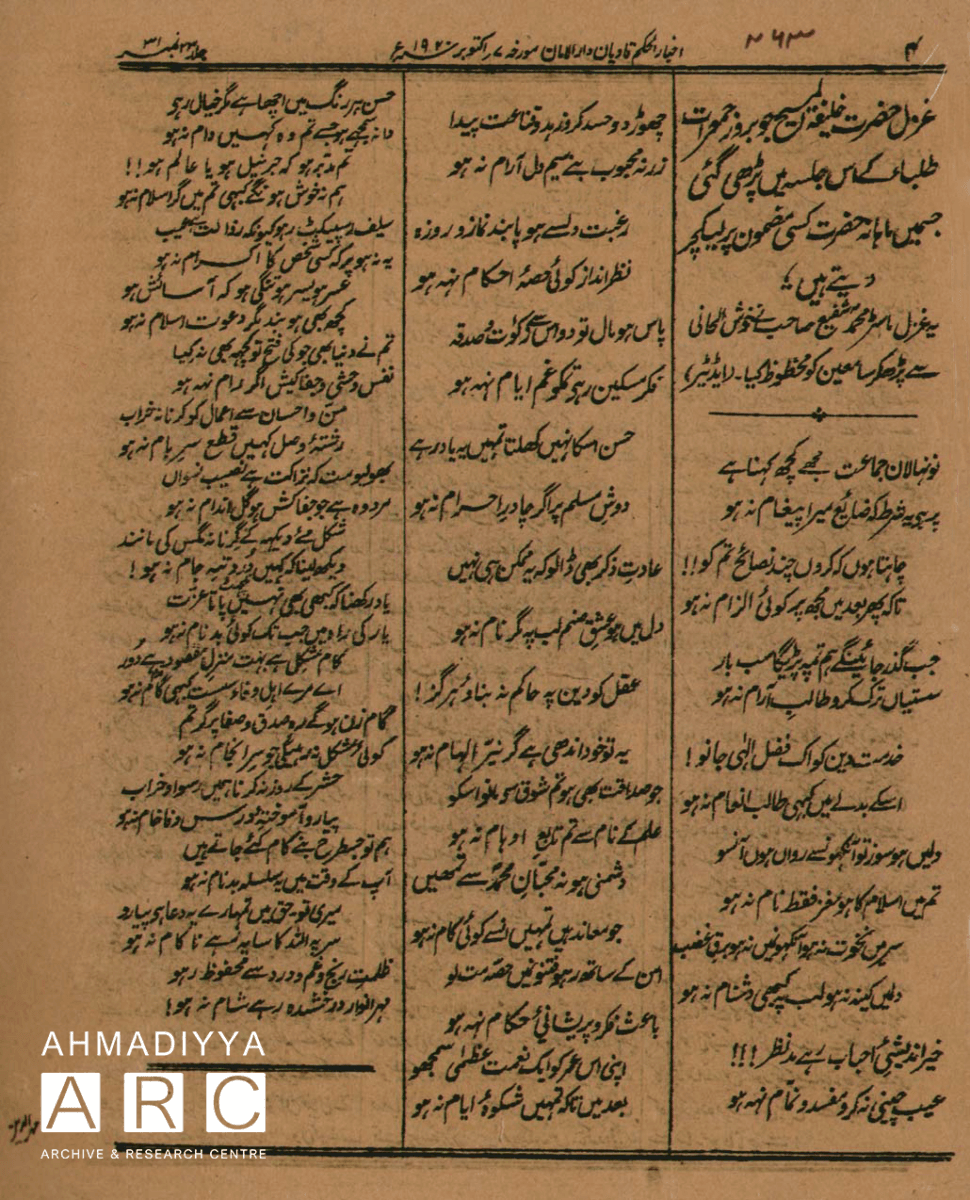 ۴
۲۶۳
اخبار الحکم قادیان دارالامان مورخہ ۷ اکتوبر ۱۹۲۰ء
جلد ۲۳ نمبر ۳۱
غزل حضرت خلیفۃ المسیح جو بروز جمعرات
طلباء کے اس جلسہ میں پڑھی گئی
جسمیں ماہانہ حضرت کسی مضمون پر لیکچر
دیتے ہیں؛
یہ غزل ماسٹر محمد شفیع صاحب نے خوش الحانی
سے پڑھکر سامعین کو محظوظ کیا۔ (ایڈیٹر)
نونہالان جماعت مجھے کچھ کہنا ہے
پر ہے یہ شرط کہ ضایع میرا پیغام نہ ہو
چاہتا ہوں کہ کروں چند نصائح تم کو!!
تاکہ پھر بعد میں مجھ پر کوئی الزام نہ ہو
جب گذر جائینگے ہم تمپہ پڑیگا سب بار
سستیاں ترک کرو طالب آرام نہ ہو
خدمت دین کو اک فضل الٰہی جانو!
اسکے بدلے میں کبھی طالب انعام نہ ہو
دلمیں ہو سوز تو آنکھونسے رواں ہوں آنسو
تم میں اسلام کا ہو مغز فقط نام نہ ہو
سر میں نخوت نہ ہو آنکھونمیں نہ ہو برق غضب
دلمیں کینہ نہ ہو لب پر کبھی دشنام نہ ہو
خیر اندیشیٔ احباب رہے مدنظر!!!
عیب چینی نہ کرو مفسد و نمام نہہ ہو
چھوڑ دو حسد کرو زہد و قناعت پیدا
زر نہ محبوب بنے سیم دل آرام نہ ہو
رغبت دلسے ہو پابند نماز و روزہ
نظر انداز کوئی حصۂ احکام نہہ ہو
پاس ہو مال تو دو اس سے زکوٰت و صدقہ
فکر مسکین رہے تمکو غم ایام نہہ ہو
حسن اسکا نہیں کھلتا تمہیں یہ یاد رہے
دوش مسلم پر اگر چادر احرام نہ ہو
عادت ذکر بھی ڈالو کہ یہ ممکن ہی نہیں
دل میں ہو عشق صنم لب پہ مگر نام نہ ہو
عقل کو دین پہ حاکم نہ بناؤ ہرگز!
یہ تو خود اندھی ہے گر نیر الہام نہ ہو
جو صداقت بھی ہو تم شوق سو مانو اسکو
علم کے نام سے تم تابع اوہام نہ ہو
دشمنی ہو نہ محبان محمدؐ سے تمھیں
جو معاند ہیں تمہیں انسے کوئی کام نہ ہو
امن کے ساتھ رہو فتنونمیں حصہ مت لو
باعث فکر و پریشانیٔ حکام نہہ ہو
اپنی اس عمر کو ایک نعمت عظمیٰ سمجھو
بعد میں تاکہ تمہیں شکوۂ ایام نہ ہو
حسن ہر رنگ میں اچھا ہے مگر خیال رہو
دانہ سمجھے ہو جسے تم وہ کہیں دام نہ ہو
تم مدبر ہو کہ جرنیل ہو یا عالم ہو!!
ہم نہ خوش ہونگے کبھی تم میں گر اسلام نہ ہو
سیلف رسپیکٹ رہو
یہ نہ ہو پر کہ کسی شخص کا اکرام نہ ہو
عسر ہو یسر ہو تنگی ہو کہ آسائش ہو
کچھ بھی ہو بند مگر دعوت اسلام نہ ہو
تم نے دنیا بھی جو کی فتح تو کچھ بھی نہ کیا
نفس وحشی و جفاکیش اگر رام نہہ ہو
من و احسان سے اعمال کو کرنا نہ خراب
رشتۂ وصل کہیں قطع سر بام نہ ہو
بھولیو مت کہ نزاکت ہے نصیب نسواں
مرد وہ ہے جو جفاکش ہو گل اندام نہ ہو
شکل مئے دیکھ کے گرنا نہ مگس کی مانند
دیکھ لینا کہ کہیں دُرد تہہ جام نہ ہو!
یاد رکھنا کہ کبھی بھی نہیں پاتا عزت
یار کی راہ میں جب تک کوئی بدنام نہ ہو
کام مشکل ہے بہت منزل مقصود ہے دُور
اے مرے اہل وفا سست کبھی گام نہ ہو
گام زن ہو گے رہ صدق و صفا پر گر تم
کوئی مشکل نہ رہیگی جو سرانجام نہ ہو
حشر کے روز نہ کرنا ہمیں رسوا و خراب
پیارو آموختۂ درس وفا خام نہ ہو
ہم تو جسطرح بنے کام کئے جاتے ہیں
آپ کے وقت میں یہ سلسلہ بدنام نہ ہو
میری تو حق میں تمہارے یہ دعا ہو پیارو
سر پہ اللہ کا سایہ رہے ناکام نہ ہو
ظلمت رنج و غم و درد سے محفوظ رہو
مہر انوار درخشندہ رہے شام نہ ہو!
AHMADIYYA
ARC
ARCHIVE & RESEARCH CENTRE